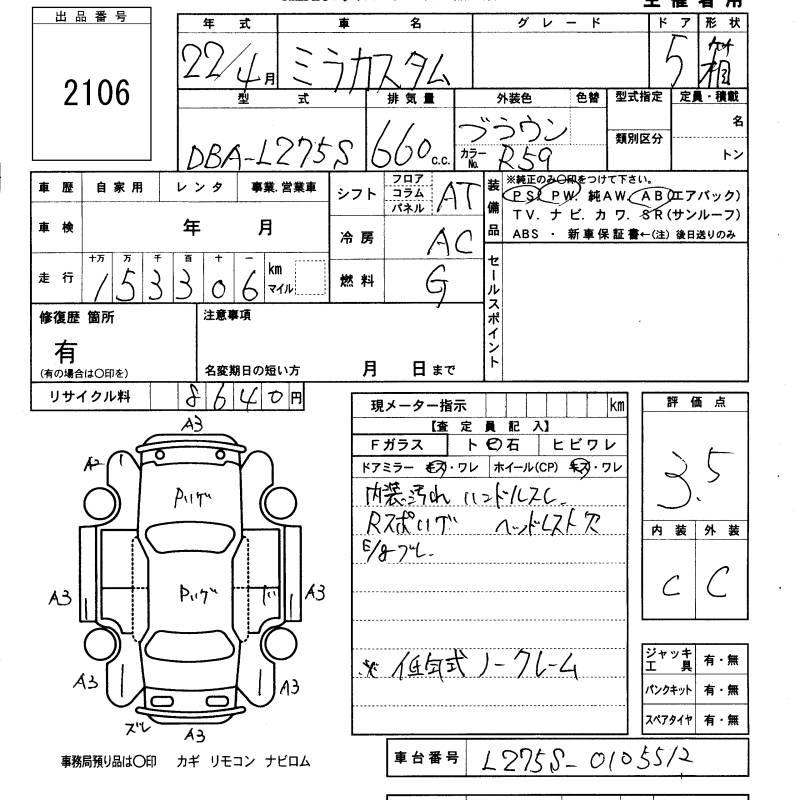 出品番号
2106
年式 車名 グレード ドア 形状
22/4月 ミラカスタム 5 箱
型式 排気量 外装色 色替 型式指定 定員・積載
DBA-L275S 660c.c. ブラウン 類別区分 名
カラーNo. R59 トン
車歴 自家用 レンタ 事業.営業車
シフト フロア コラム パネル AT
装備品 ※純正のみ○印をつけて下さい。
PS. PW. 純AW. AB(エアバック)
TV. ナビ. カワ. SR(サンルーフ)
ABS ・ 新車保証書←(注) 後日送りのみ
車検 年 月
冷房 AC
走行 十万 万 千 百 十 一
153306 km マイル
燃料 G
セールスポイント
修復歴 箇所
有
(有の場合は○印を)
注意事項
名変期日の短い方 月 日まで
リサイクル料 8640円
現メーター指示 km
【査定員記入】
Fガラス ト(ビ)石 ヒビワレ
ドアミラー キズ・ワレ ホイール(CP) キズ・ワレ
内装汚れ ハンドルスレ
Rスポハゲ ヘッドレスト欠
E/gブレ
※ 低年式ノークレーム
評価点
3.5
内装 外装
C C
A3
A2
Pハゲ
A3
Pハゲ
A3
A3
A3
ズレ
A3
ジャッキ工具 有・無
パンクキット 有・無
スペアタイヤ 有・無
事務局預り品は○印 カギ リモコン ナビロム
車台番号 L275S-0105512